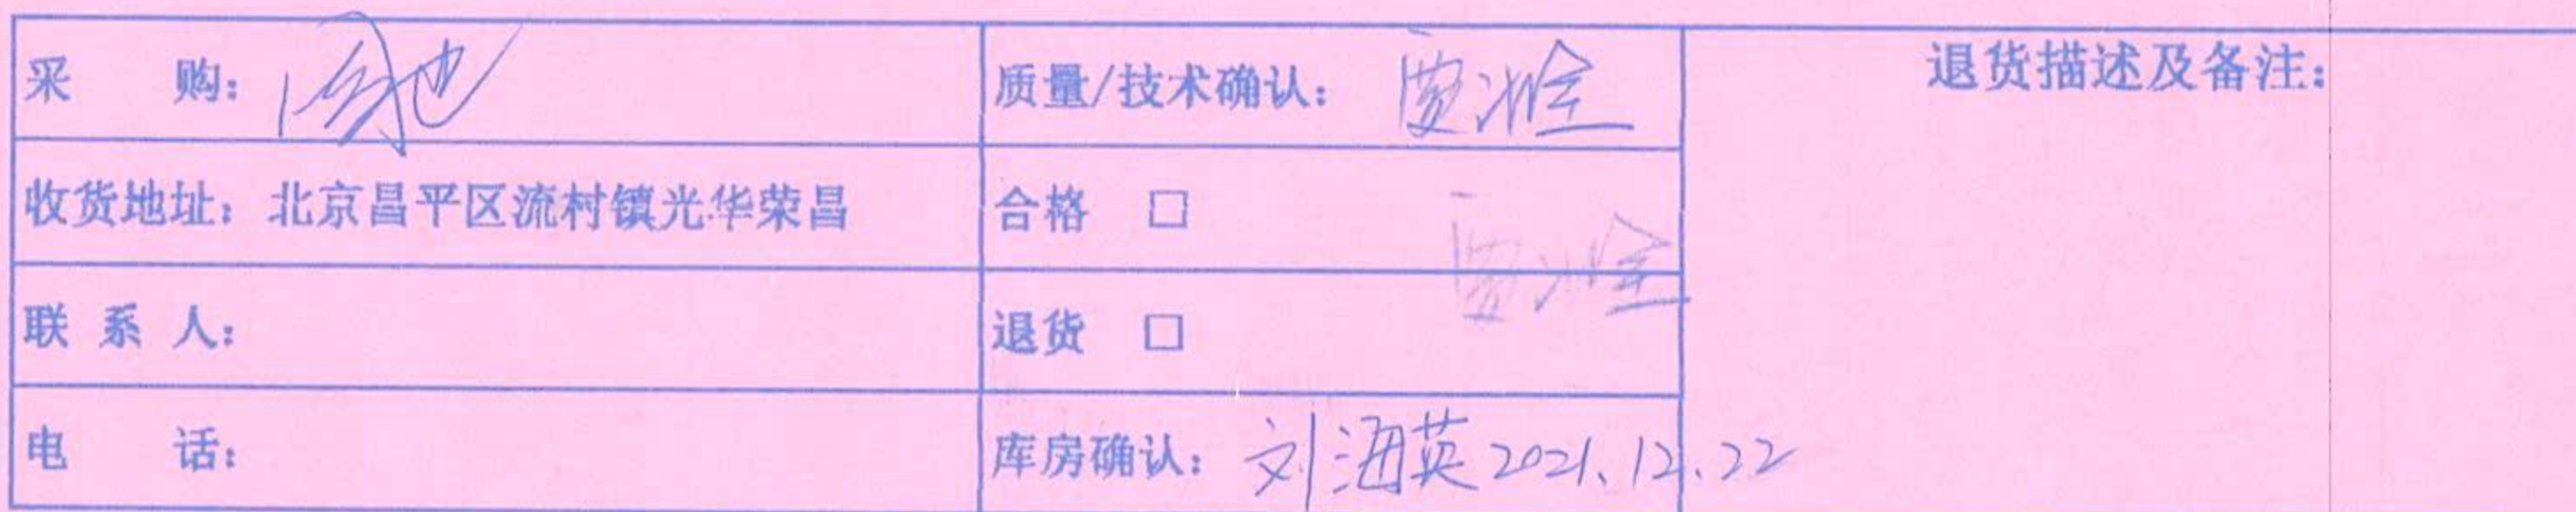 采 购:
质量/技术确认:
退货描述及备注:
收货地址: 北京昌平区流村镇光华荣昌
合格 □
联 系 人:
退货 □
电 话:
库房确认: 刘海英 2021.12.22